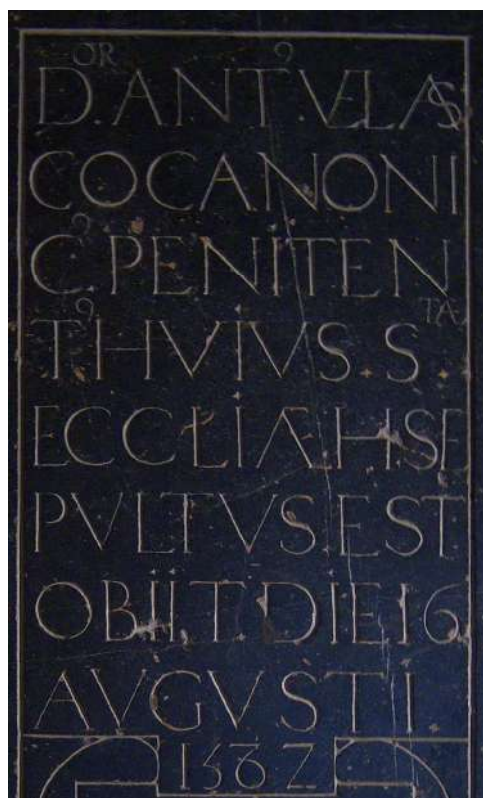 Dᴼᴿ. ANTꝰ VELAS
CO CANONI
Cꝰ. PENITEN
Tꝰ. HVIVS. Sᵀᴬ.
ECCLIÆ H SE
PVLTVS. EST
OBIIT. DIE 16
AVGVSTI.
1562